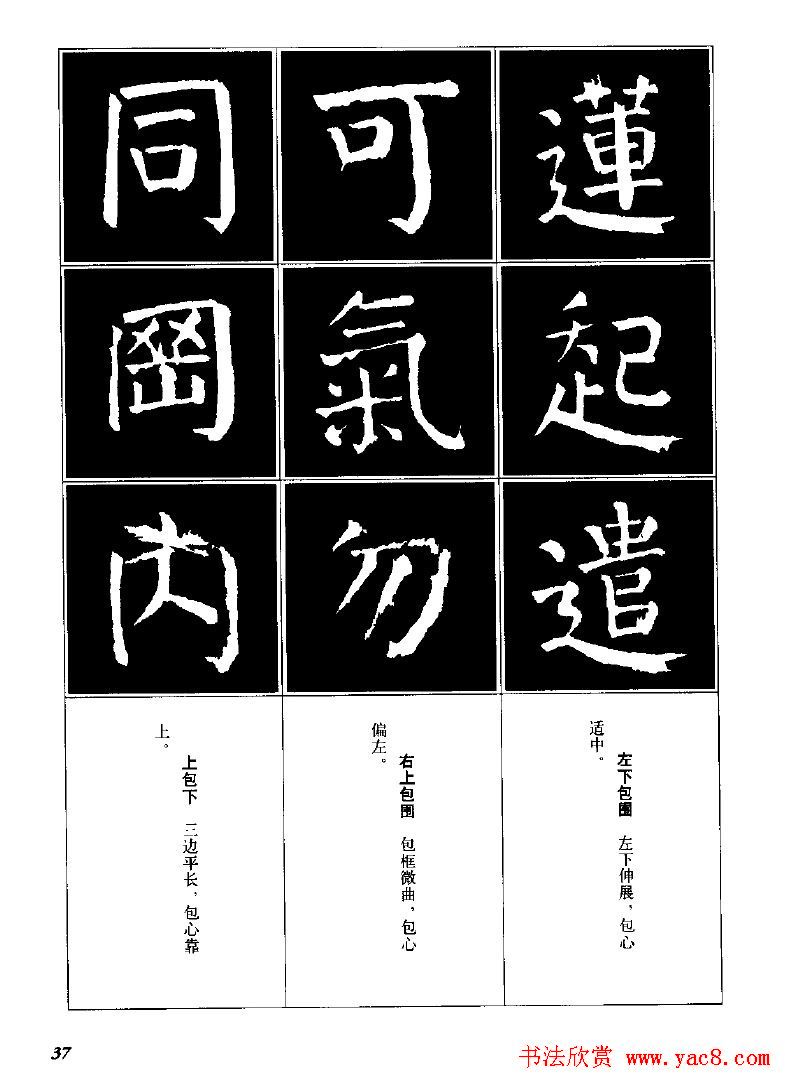 蓮
起
遣
左下包围 左下伸展，包心
适中。
可
氣
勿
右上包围 包框微曲，包心
偏左。
同
岡
内
上包下 三边平长，包心靠
上。
37
书法欣赏 www.yac8.com